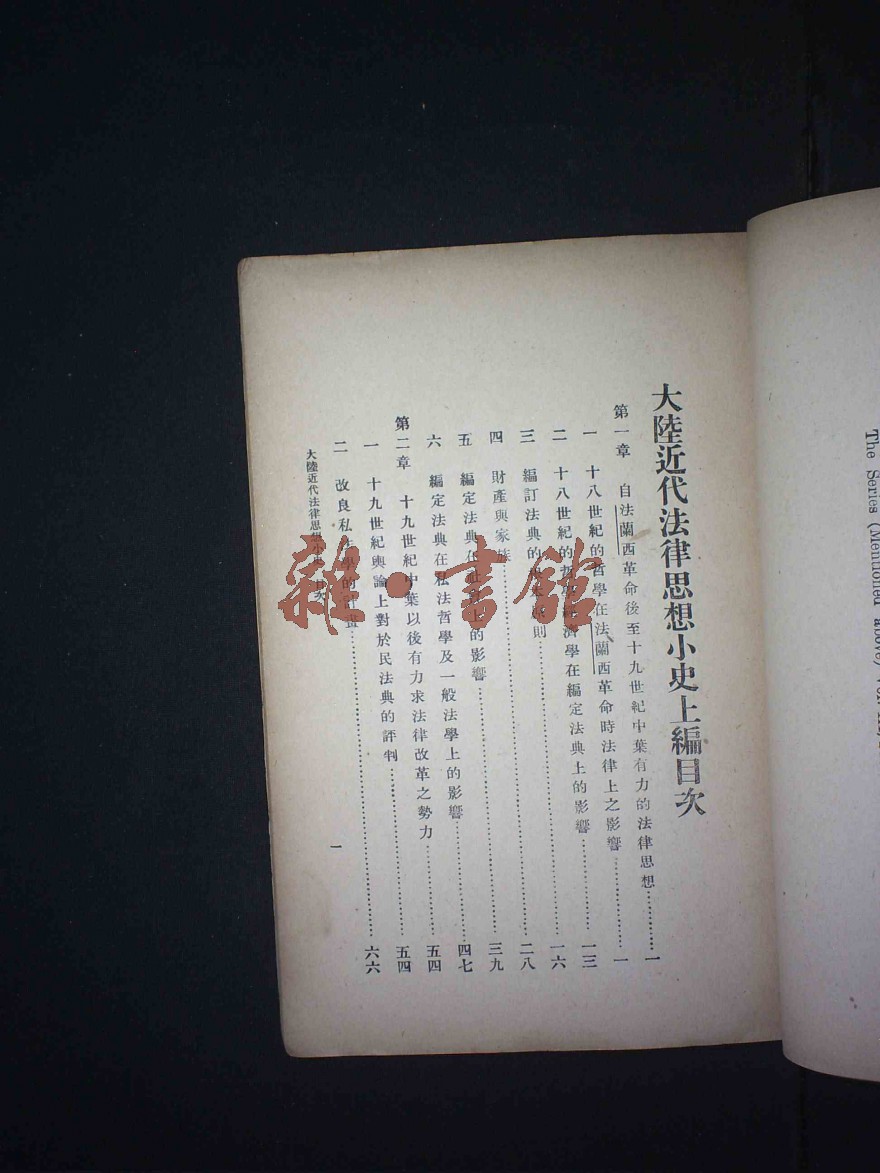 The Series (Mentioned above)
大陸近代法律思想小史上編目次
第一章 自法蘭西革命後至十九世紀中葉有力的法律思想…………一
一 十八世紀的哲學在法蘭西革命時法律上之影響…………一
二 十八世紀的哲學經濟學在編定法典上的影響…………一三
三 編訂法典的則…………一六
四 財產與家族…………二八
五 編定法典在社會上的影響…………三九
六 編定法典在私法哲學及一般法學上的影響…………四七
第二章 十九世紀中葉以後有力求法律改革之勢力…………五四
一 十九世紀輿論上對於民法典的評判…………五四
二 改良私法學的計畫…………六六
大陸近代法律思想小史 目次
一
雜·書館